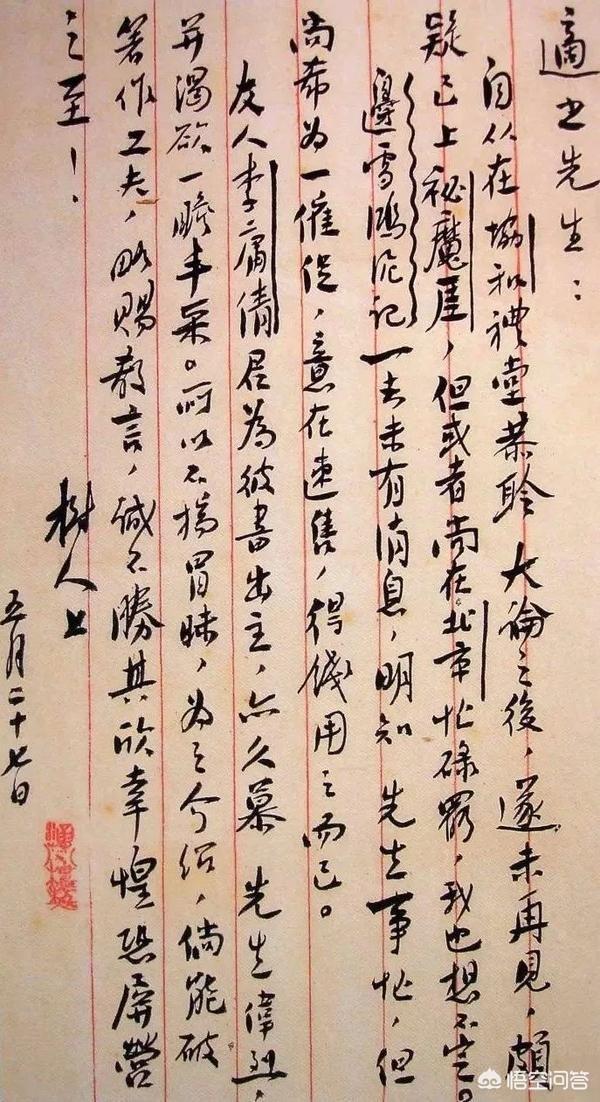 適之先生：
自从在協和禮堂恭聆大論之後，遂未再見，頗
疑已上祕魔厓，但或者尚在北京忙碌罷，我也想不定。
邊雪鴻泥记一去未有消息，明知 先生事忙，但
尚希为一催促，意在速售，得錢用之而已。
友人李庸倩君為彼書出主，亦久慕 先生偉烈，
并渴欲一瞻丰采。所以不揣冒昧，为之介绍，倘能破
著作工夫，略賜教言，誠不勝其欣幸惶恐屏營
之至！
樹人上
五月二十七日
悟空问答